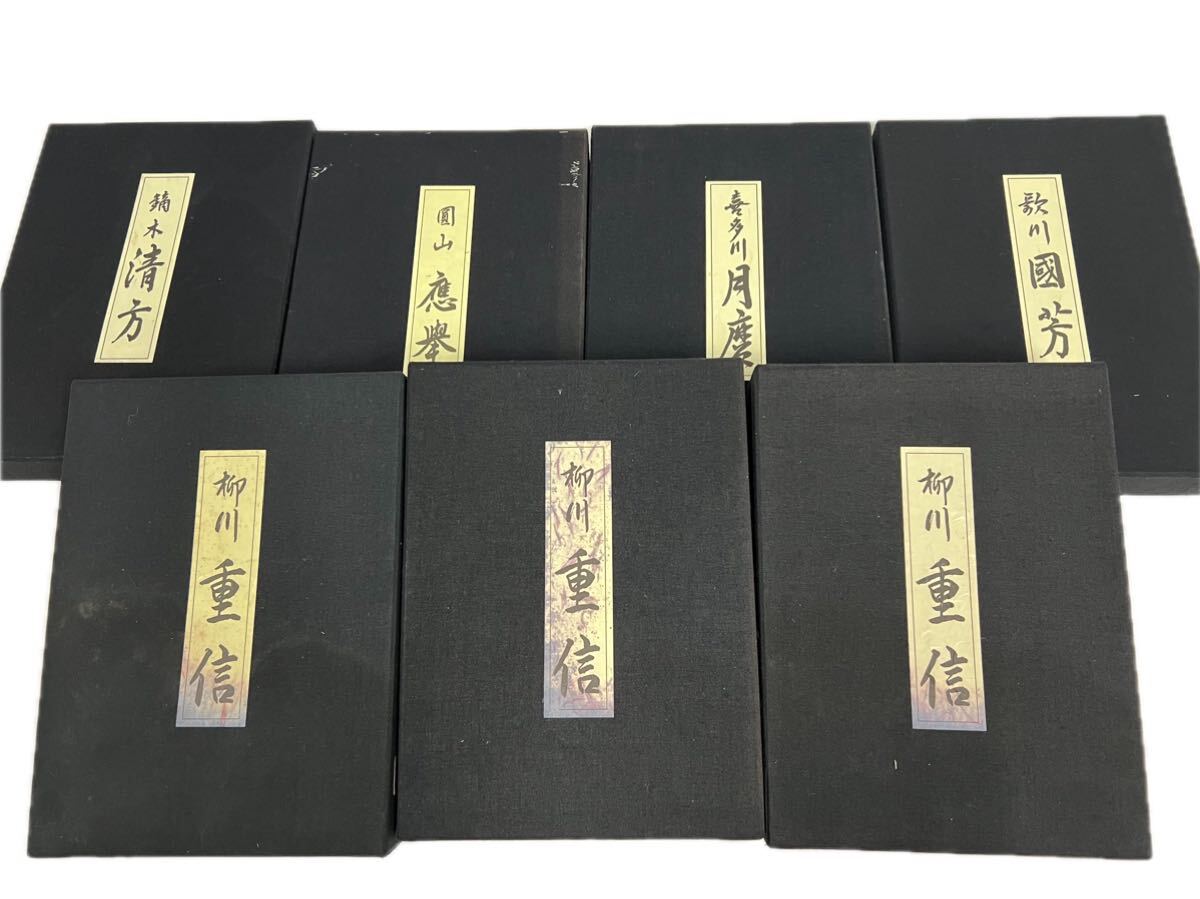 鏑木清方
圓山應舉
喜多川月麿
歌川國芳
柳川重信
柳川重信
柳川重信